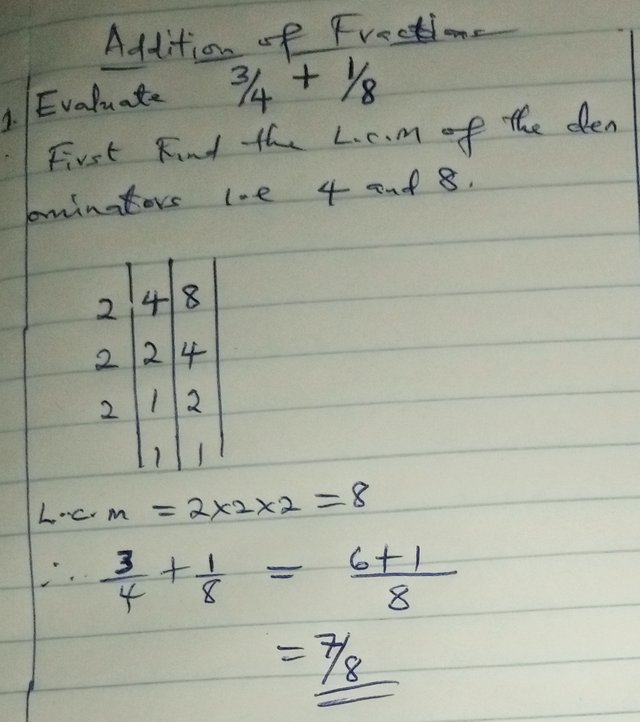 Addition of Fractions
1. Evaluate 3/4 + 1/8
First Find the L.C.M of the den
ominators i.e 4 and 8.
2 | 4 | 8
2 | 2 | 4
2 | 1 | 2
1 | 1
L.C.M = 2×2×2 = 8
∴ 3/4 + 1/8 = 6+1/8
= 7/8